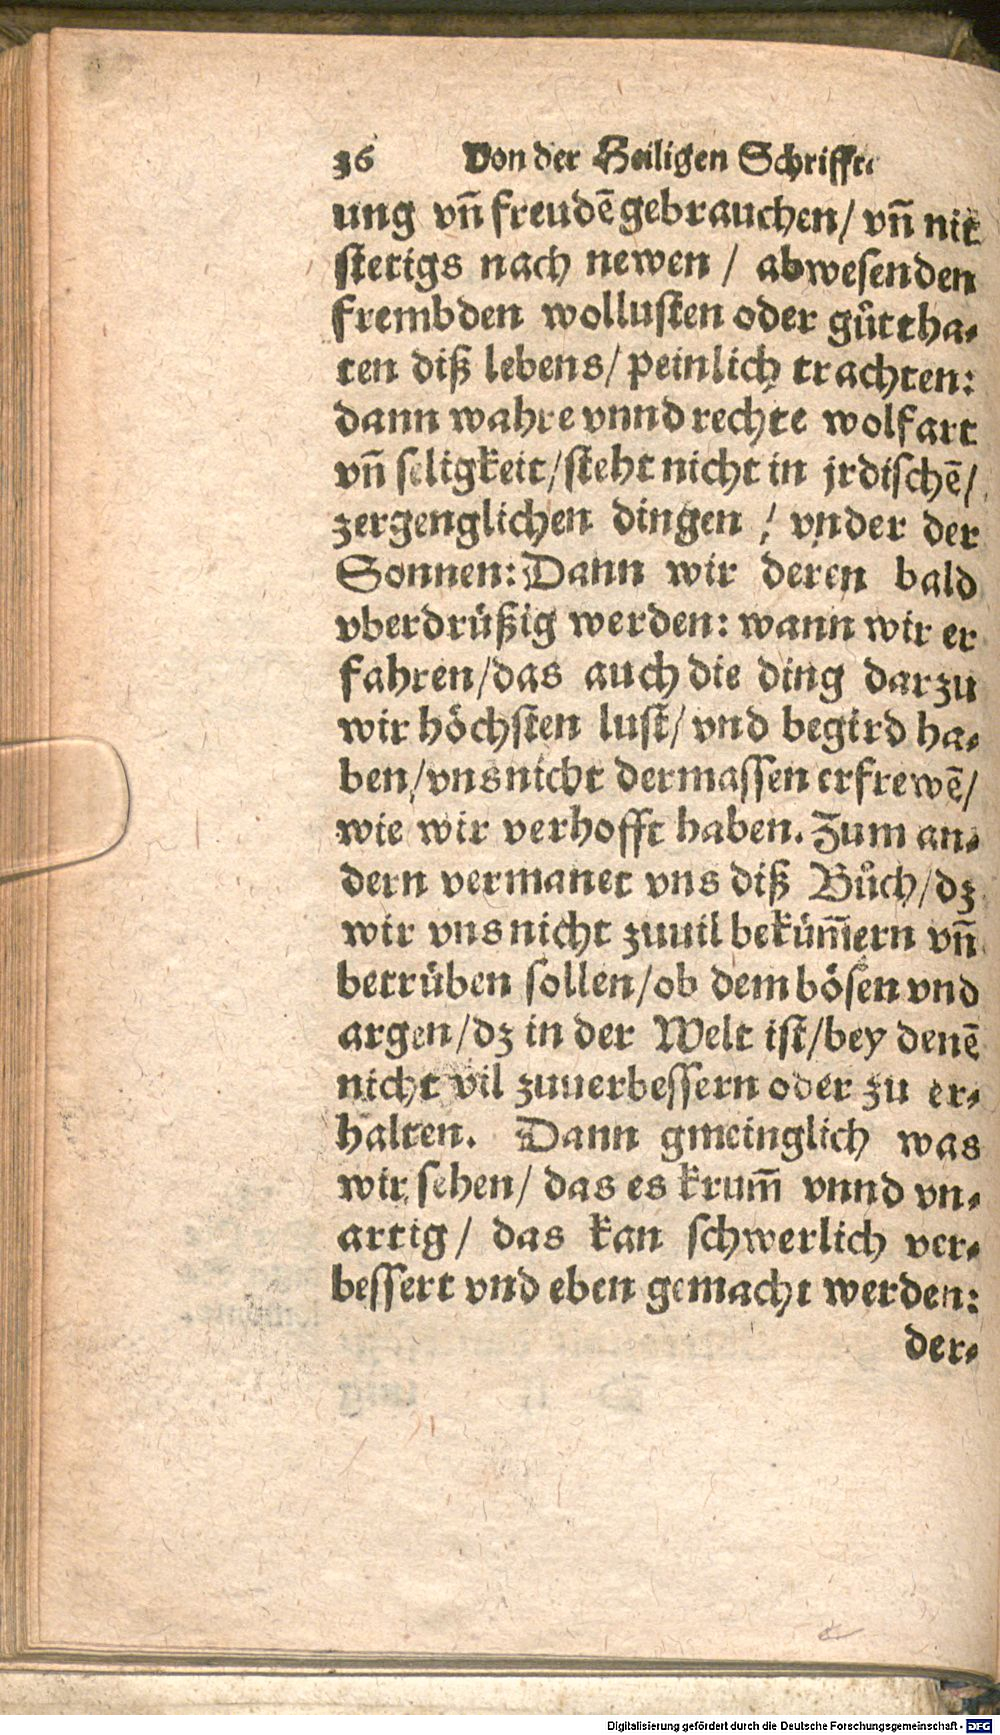 36 Von der Heiligen Schrifft.
ung vn̄ freudē gebrauchen/ vn̄ nit
stetigs nach newen / abwesenden
frembden wollusten oder gůttha⸗
ten diß lebens/ peinlich trachten:
dann wahre vnnd rechte wolfart
vn̄ seligkeit/steht nicht in jrdischē/
zergenglichen dingen / vnder der
Sonnen: Dann wir deren bald
vberdrüßig werden: wann wir er
fahren/das auch die ding darzu
wir höchsten lust/ vnd begird ha⸗
ben/vns nicht dermassen erfrewē/
wie wir verhofft haben. Zum an⸗
dern vermanet vns diß Bůch/dz
wir vns nicht zuuil beküm̄ern vn̄
betrüben sollen/ob dem bösen vnd
argen/dz in der Welt ist/bey denē
nicht vil zuuerbessern oder zu er⸗
halten. Dann gmeinglich was
wir sehen/ das es krum̄ vnnd vn⸗
artig/ das kan schwerlich ver⸗
bessert vnd eben gemacht werden:
der⸗
Digitalisierung gefördert durch die Deutsche Forschungsgemeinschaft - DFG